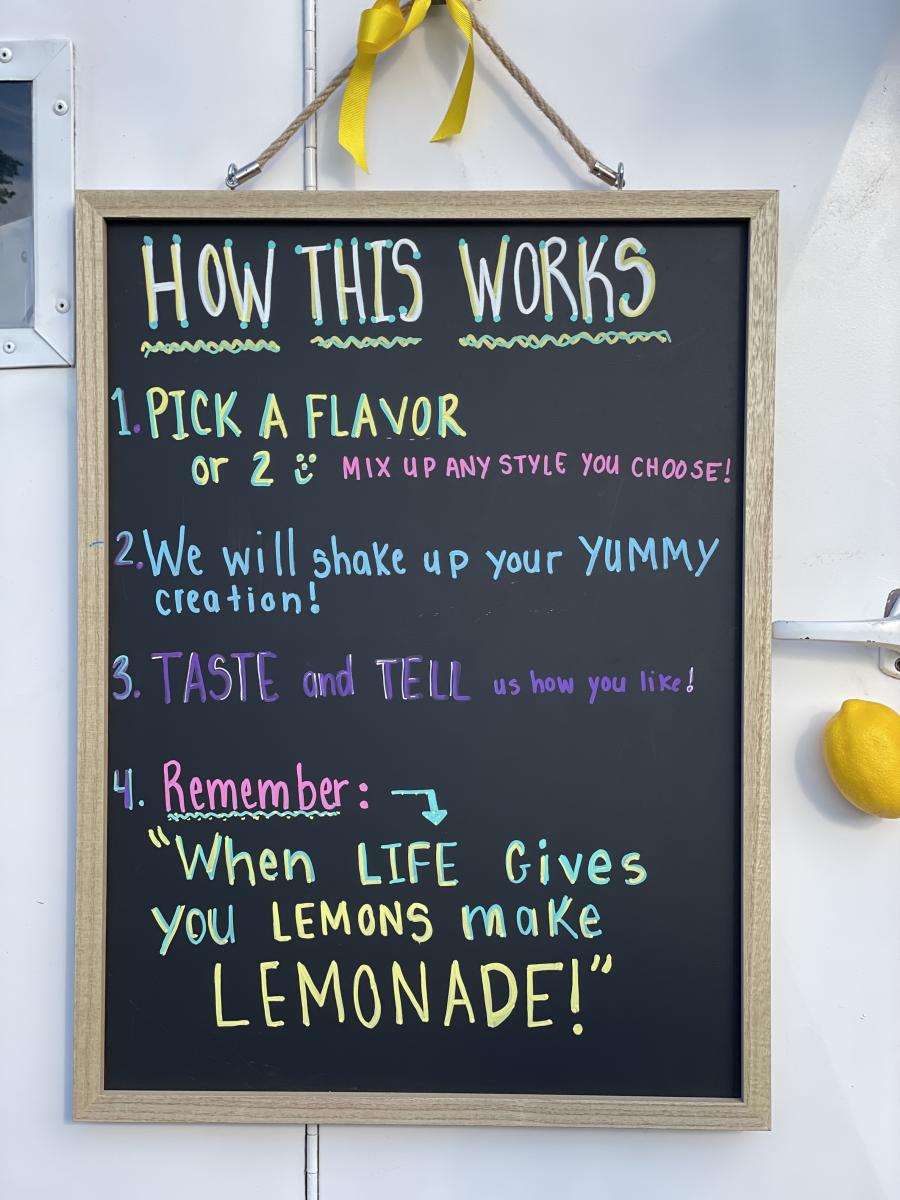 HOW THIS WORKS
1. PICK A FLAVOR
or 2 MIX UP ANY STYLE YOU CHOOSE!
2. We will shake up your YUMMY
creation!
3. TASTE and TELL us how you like!
4. Remember:
"When LIFE Gives
you LEMONS make
LEMONADE!"